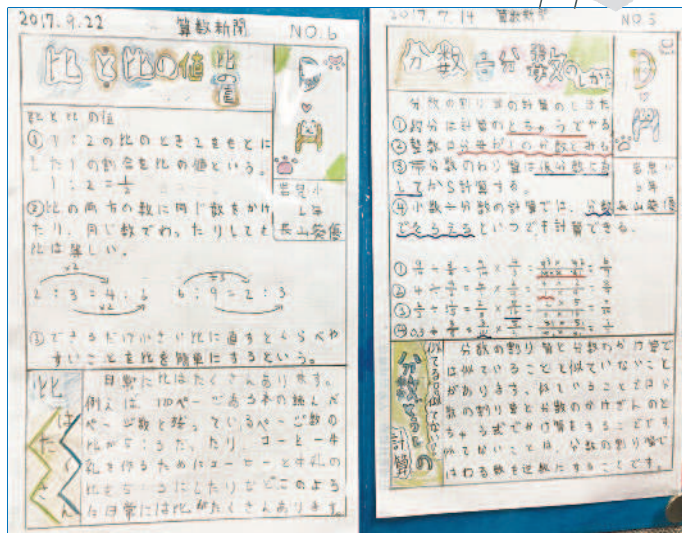 2017.9.22 算数新聞 NO.6
比と比の値
比の値
岩見小
6年
比と比の値
①1:2の比のとき2をもとに
した1の割合を比の値という。
1:2=1/2
②比の両方の数に同じ数をかけ
たり、同じ数でわったりしても
比は等しい。
×2
2:3=4:6 6:9=2:3
×2
③できるだけ小さい比に直すとくらべや
すいことを比を簡単にするという。
比
はたくさん
日常に比はたくさんあります。
ページ数と残っているページ数の
比が5:3だったり、コーヒー牛
乳を作るためにコーヒーと牛乳の
比を5:3にしたりなどこのよう
な日常には比がたくさんあります。
2017.7.14 算数新聞 NO.5
分数÷分数のしかた
6年
分数の割り算の計算のしかた
①約分は計算のとちゅうでやる
②整数は分母が1の分数とみる
③帯分数のわり算は仮分数になお
してから計算する。
④小数÷分数の計算では、分数
でそろえるといつでも計算できる。
分数どうしの計算
似てる?似てない?
分数の割り算と分数のかけ算で
は似ていることと似ていないこと
があります。似ていることは分
数の割り算と分数のかけざんのと
ちゅう式でかけ算をすることです。
似てないことは、分数の割り算で
はわる数を逆数にすることです。